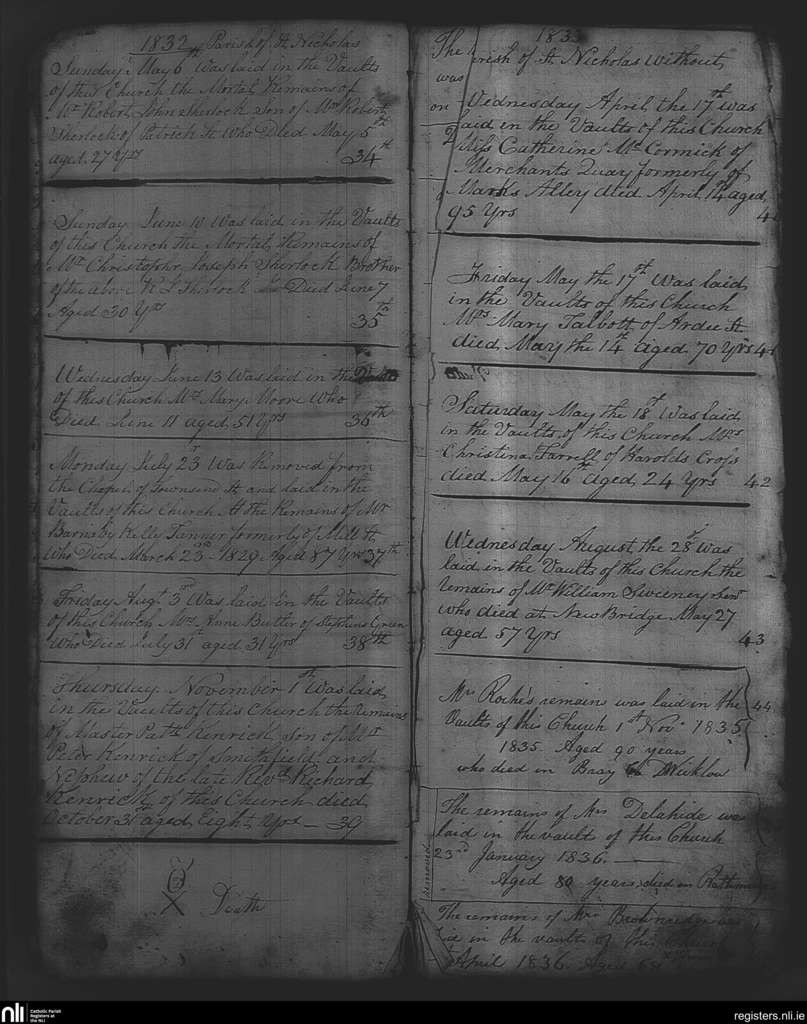 1832 Parish of St Nicholas
Sunday May 6th Was laid in the Vaults
of this Church the Mortal Remains of
Mr Robert John Sherlock Son of Mr Robert
Sherlock of Patrick St Who Died May 5th
aged 27 Yrs 34th
Sunday June 10 Was laid in the Vaults
of this Church the Mortal Remains of
Mr Christophr Joseph Sherlock Brother
of the above Died June 7th
Aged 30 Yrs 35th
Wednesday June 13 Was laid in the Vaults
of this Church Mrs Mary Moore Who
Died June 11 aged 51 Yrs 36th
Monday July 23d Was Removed from
the Chapel of Townsend St and laid in the
Vaults of this Church the Remains of Mr
Barnaby Kelly Tanner formerly of Mill St
Who Died March 23d 1829 Aged 87 Yrs 37th
Friday Augt 3d Was laid in the Vaults
of this Church Mrs Anne Butler of Stephens Green
Who Died July 31st aged 31 Yrs 38th
Thursday November 1st Was laid
in the Vaults of this Church the Remains
of Master Patk Kenrick Son of Mr
Peter Kenrick of Smithfield and
Nephew of the late Revd Richard
Kenrick of this Church died
October 31st aged Eight Yrs — 39
Death
1833
The Parish of St Nicholas Without
was
on Wednesday April the 17th was
laid in the Vaults of this Church
Miss Catherine McCormick of
Merchants Quay formerly of
Marks Alley died April 14th aged
95 Yrs
Friday May the 17th Was laid
in the Vaults of this Church
Mrs Mary Talbott of Ardee St
died May the 14th aged 70 Yrs 41
Saturday May the 18th Was laid
in the Vaults of this Church Mrs
Christina Farrell of Harolds Cross
died May 16th aged 24 Yrs 42
Wednesday August the 28th Was
laid in the Vaults of this Church the
remains of Mr William Sweeney Senr
who died at New Bridge May 27
aged 57 Yrs 43
Mrs Roche's remains was laid in the 44
Vaults of this Church 1st Novr 1835
1835. Aged 90 years
who died in Bray Co Wicklow
The remains of Mrs Delahide was
laid in the vaults of this Church
23rd January 1836. —
Aged 80 years, died in
removed
The remains of Mrs was
laid in the vaults of this Church
April 1836. Aged
nli
Catholic Parish
Registers at
the NLI
registers.nli.ie